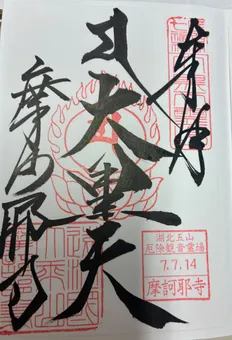 奉拝
大黒天
摩訶耶寺
湖北五山
厄除観音霊場
7.7.14
摩訶耶寺